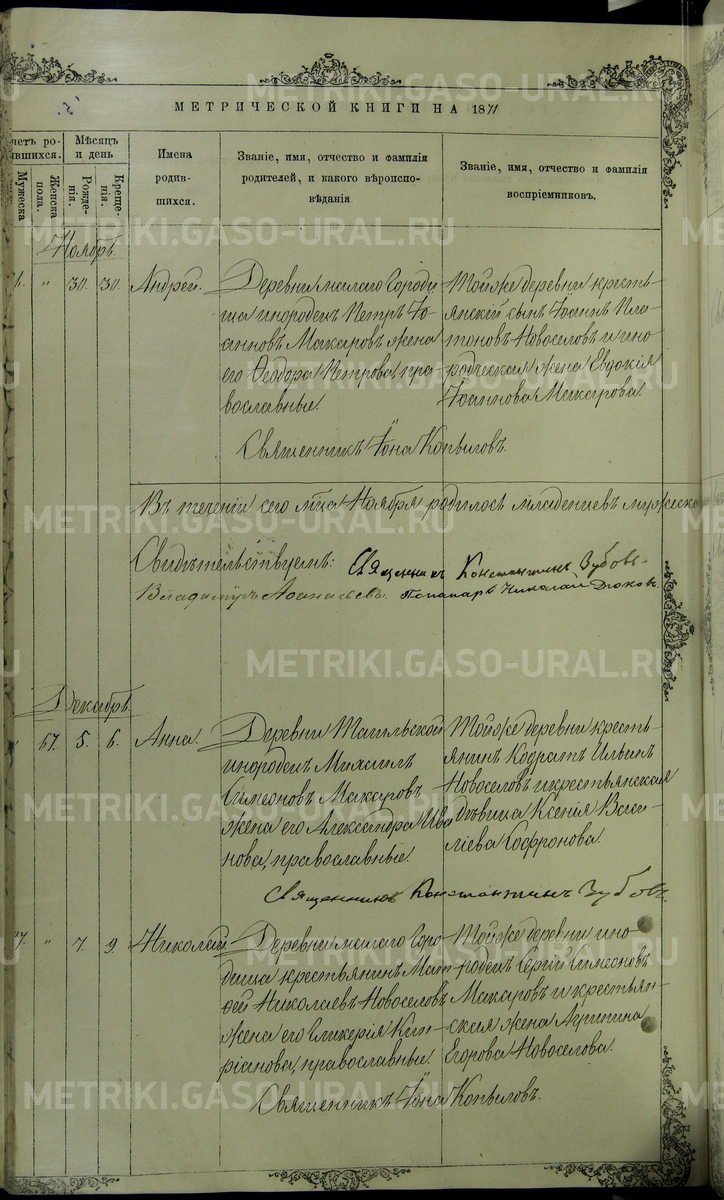 МЕТРИЧЕСКОЙ КНИГИ НА 1871
четъ ро-
ившихся.
Мужеска
Женска
пола.
Мѣсяцъ
и день
Рожде-
нія.
Креще-
нія.
Имена
родив-
шихся.
Званіе, имя, отчество и фамилія
родителей, и какого вѣроиспо-
вѣданія
Званіе, имя, отчество и фамилія
воспріемниковъ.
Ноябрь.
" 30. 30. Андрей.
Деревни малаго Городи
ща инородецъ Петръ Іо-
анновъ Макаровъ жена
его Ѳеодора Петрова, пра
вославные.
Тойже деревни кресть-
янскій сынъ Іоаннъ Пла-
тоновъ Новоселовъ и ино
родческая жена Евдокія
Іоаннова Макарова.
Священникъ Іона Копыловъ.
Въ теченіи сего мѣсяца Ноября родилось младенцевъ мужеска
Свидѣтельствуемъ: Священникъ Константинъ Зубовъ
Владимиръ Аѳанасьевъ. Пономарь Николай
Декабрь.
67. 5. 6. Анна.
Деревни Тагильской
инородецъ Михаилъ
Симеоновъ Макаровъ
жена его Александра Ива
нова, православные.
Тойже деревни кресть-
янинъ Кодратъ Ильинъ
Новоселовъ и крестьянская
дѣвица Ксенія Васи-
ліева Софронова.
Священникъ Константинъ Зубовъ.
" 7. 9. Николай
Деревни малаго Горо-
дища крестьянинъ Мат
ѳей Николаевъ Новоселовъ
жена его Гликерія Кип-
ріанова, православные.
Тойже деревни ино-
родецъ Сергій Симеоновъ
Макаровъ и крестьян-
ская жена Агрипина
Егорова Новоселова.
Священникъ Іона Копыловъ.
METRIKI.GASO-URAL.RU
METRIKI.GASO-URAL.RU
METRIKI.GASO-URAL.RU
METRIKI.GASO-URAL.RU
METRIKI.GASO-URAL.RU
METRIKI.GASO-URAL.RU
METRIKI.GASO-URAL.RU
METRIKI.GASO-URAL.RU